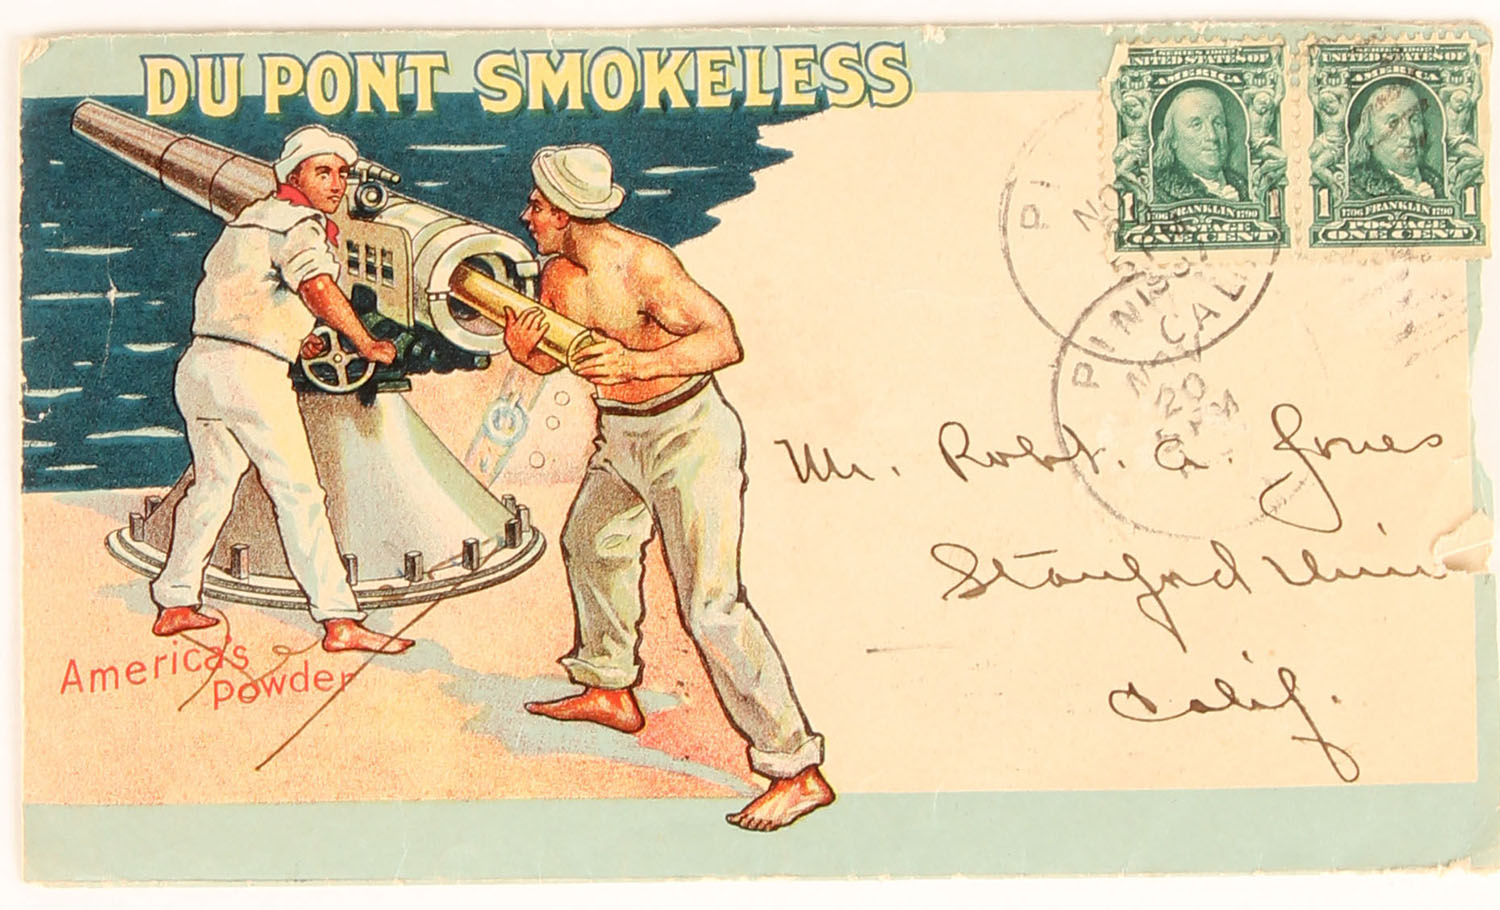 DU PONT SMOKELESS
America's
Powder
SERIES 1902
UNITED STATES OF
AMERICA
1 1706 FRANKLIN 1790 1
POSTAGE
ONE CENT
SERIES 1902
UNITED STATES OF
AMERICA
1 1706 FRANKLIN 1790 1
POSTAGE
ONE CENT
CAL
20
Mr. Robt. A. Jones
Stanford Univ
Calif.